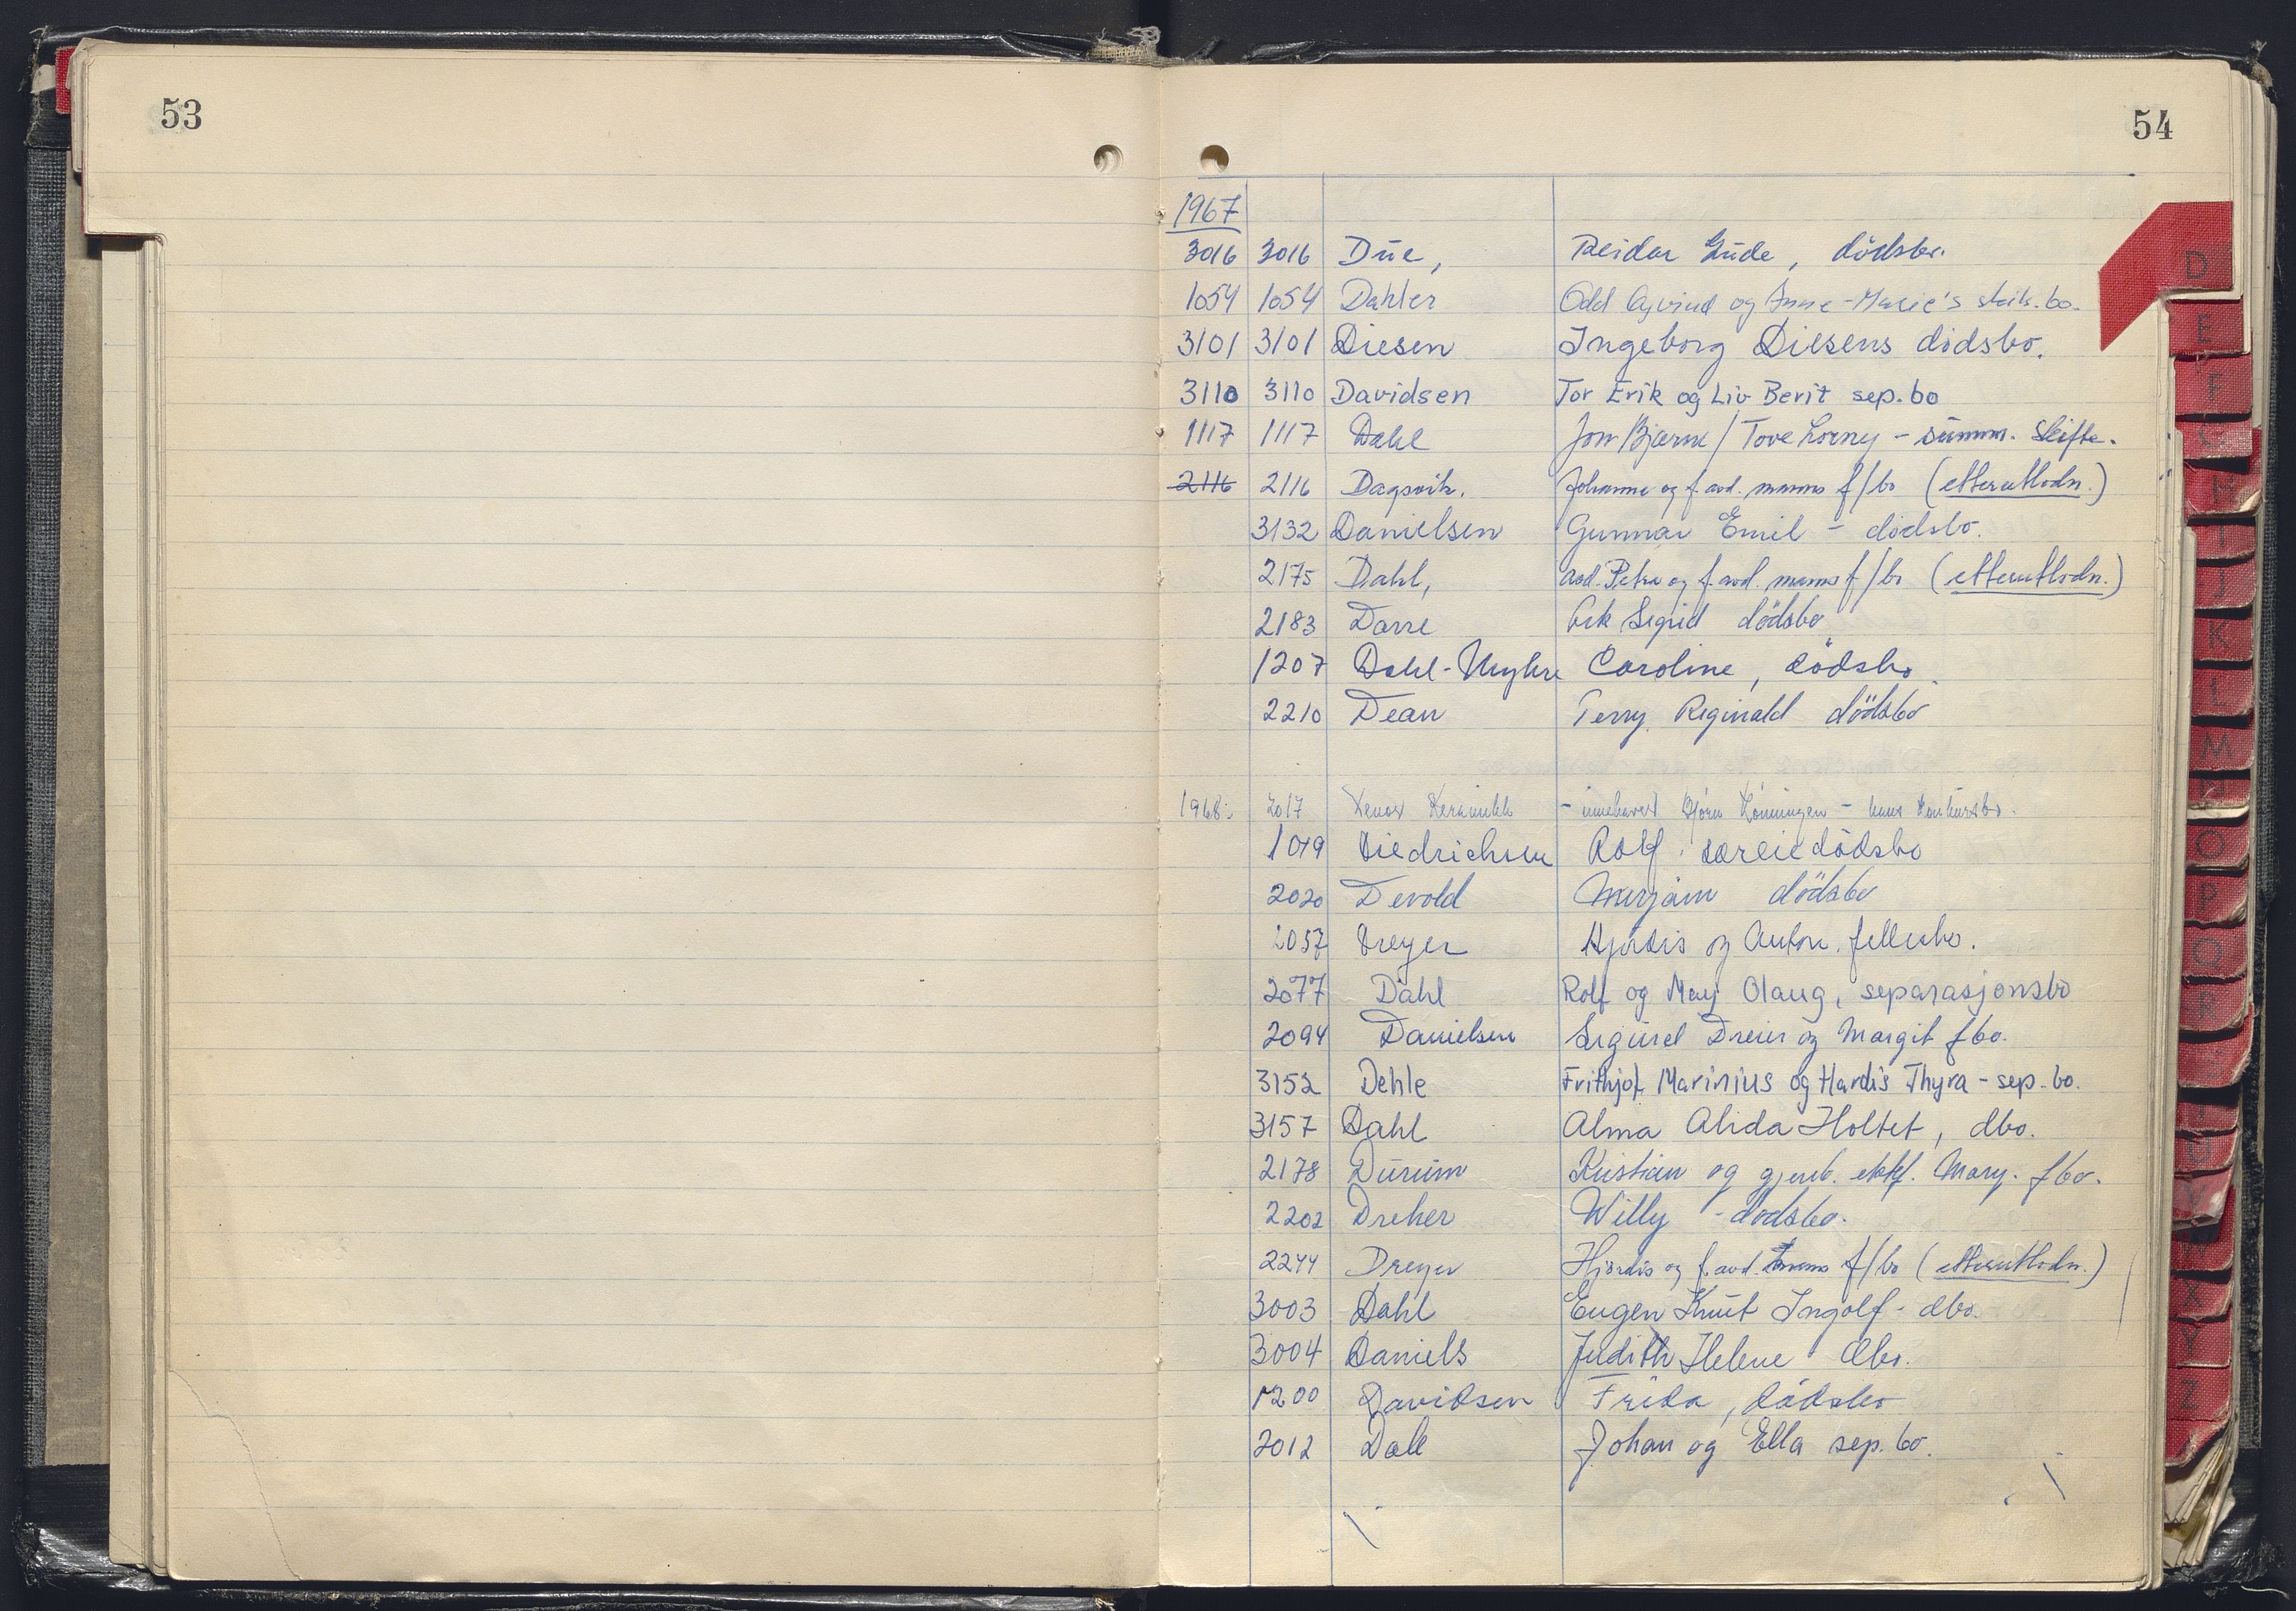 53
54
1967
3016 3016 Düe, Reidar Güde, dödsbo.
1054 1054 Dahler Odd Øyvind og Anne-Marie's skils.bo.
3101 3101 Diesen Ingeborg Diesens dödsbo.
3110 3110 Davidsen Tor Erik og Liv Berit sep.bo
1117 1117 Dahl Jon Bjarne / Tove Lorny - summ. Skifte.
2116 2116 Dagsvik. Johanne og f.avd. manns f/bo (etterutlodn.)
3132 Danielsen Gunnar Emil - dödsbo.
2175 Dahl, avd. Petra og f.avd. manns f/bo (etterutlodn.)
2183 Darre Sigrid dödsbo
1207 Dahl- Caroline, dödsbo.
2210 Dean Terry Reginald dödsbo
1968: 2017 Keramikk - innehaver Bjørn Lønningen - hans konkursbo.
1019 Diedrichsen Rolf særeie dödsbo
2020 Devold Mirjam dödsbo
2057 Dreyer Hjørdis og Anton. fellesbo.
2077 Dahl Rolf og May Olaug, separasjonsbo
2094 Danielsen Sigurd Dreier og Margit fbo.
3152 Dehle Frithjof Marinius og Hardis Thyra - sep.bo.
3157 Dahl Alma Alida Holtet, dbo.
2178 Dürüm Kristian og gjenb. ektf. Mary. fbo.
2202 Dreher Willy - dødsbo.
2244 Dreyer Hjørdis og f.avd. manns f/bo (etterutlodn.)
3003 Dahl Eugen Knüt Ingolf - dbo.
3004 Daniels Judith Helene dbo.
1200 Davidsen Frida, dödsbo
2012 Dale Johan og Ella sep.bo.
D
E
F
I
J
K
L
M
O
P
R
X
Y
Z